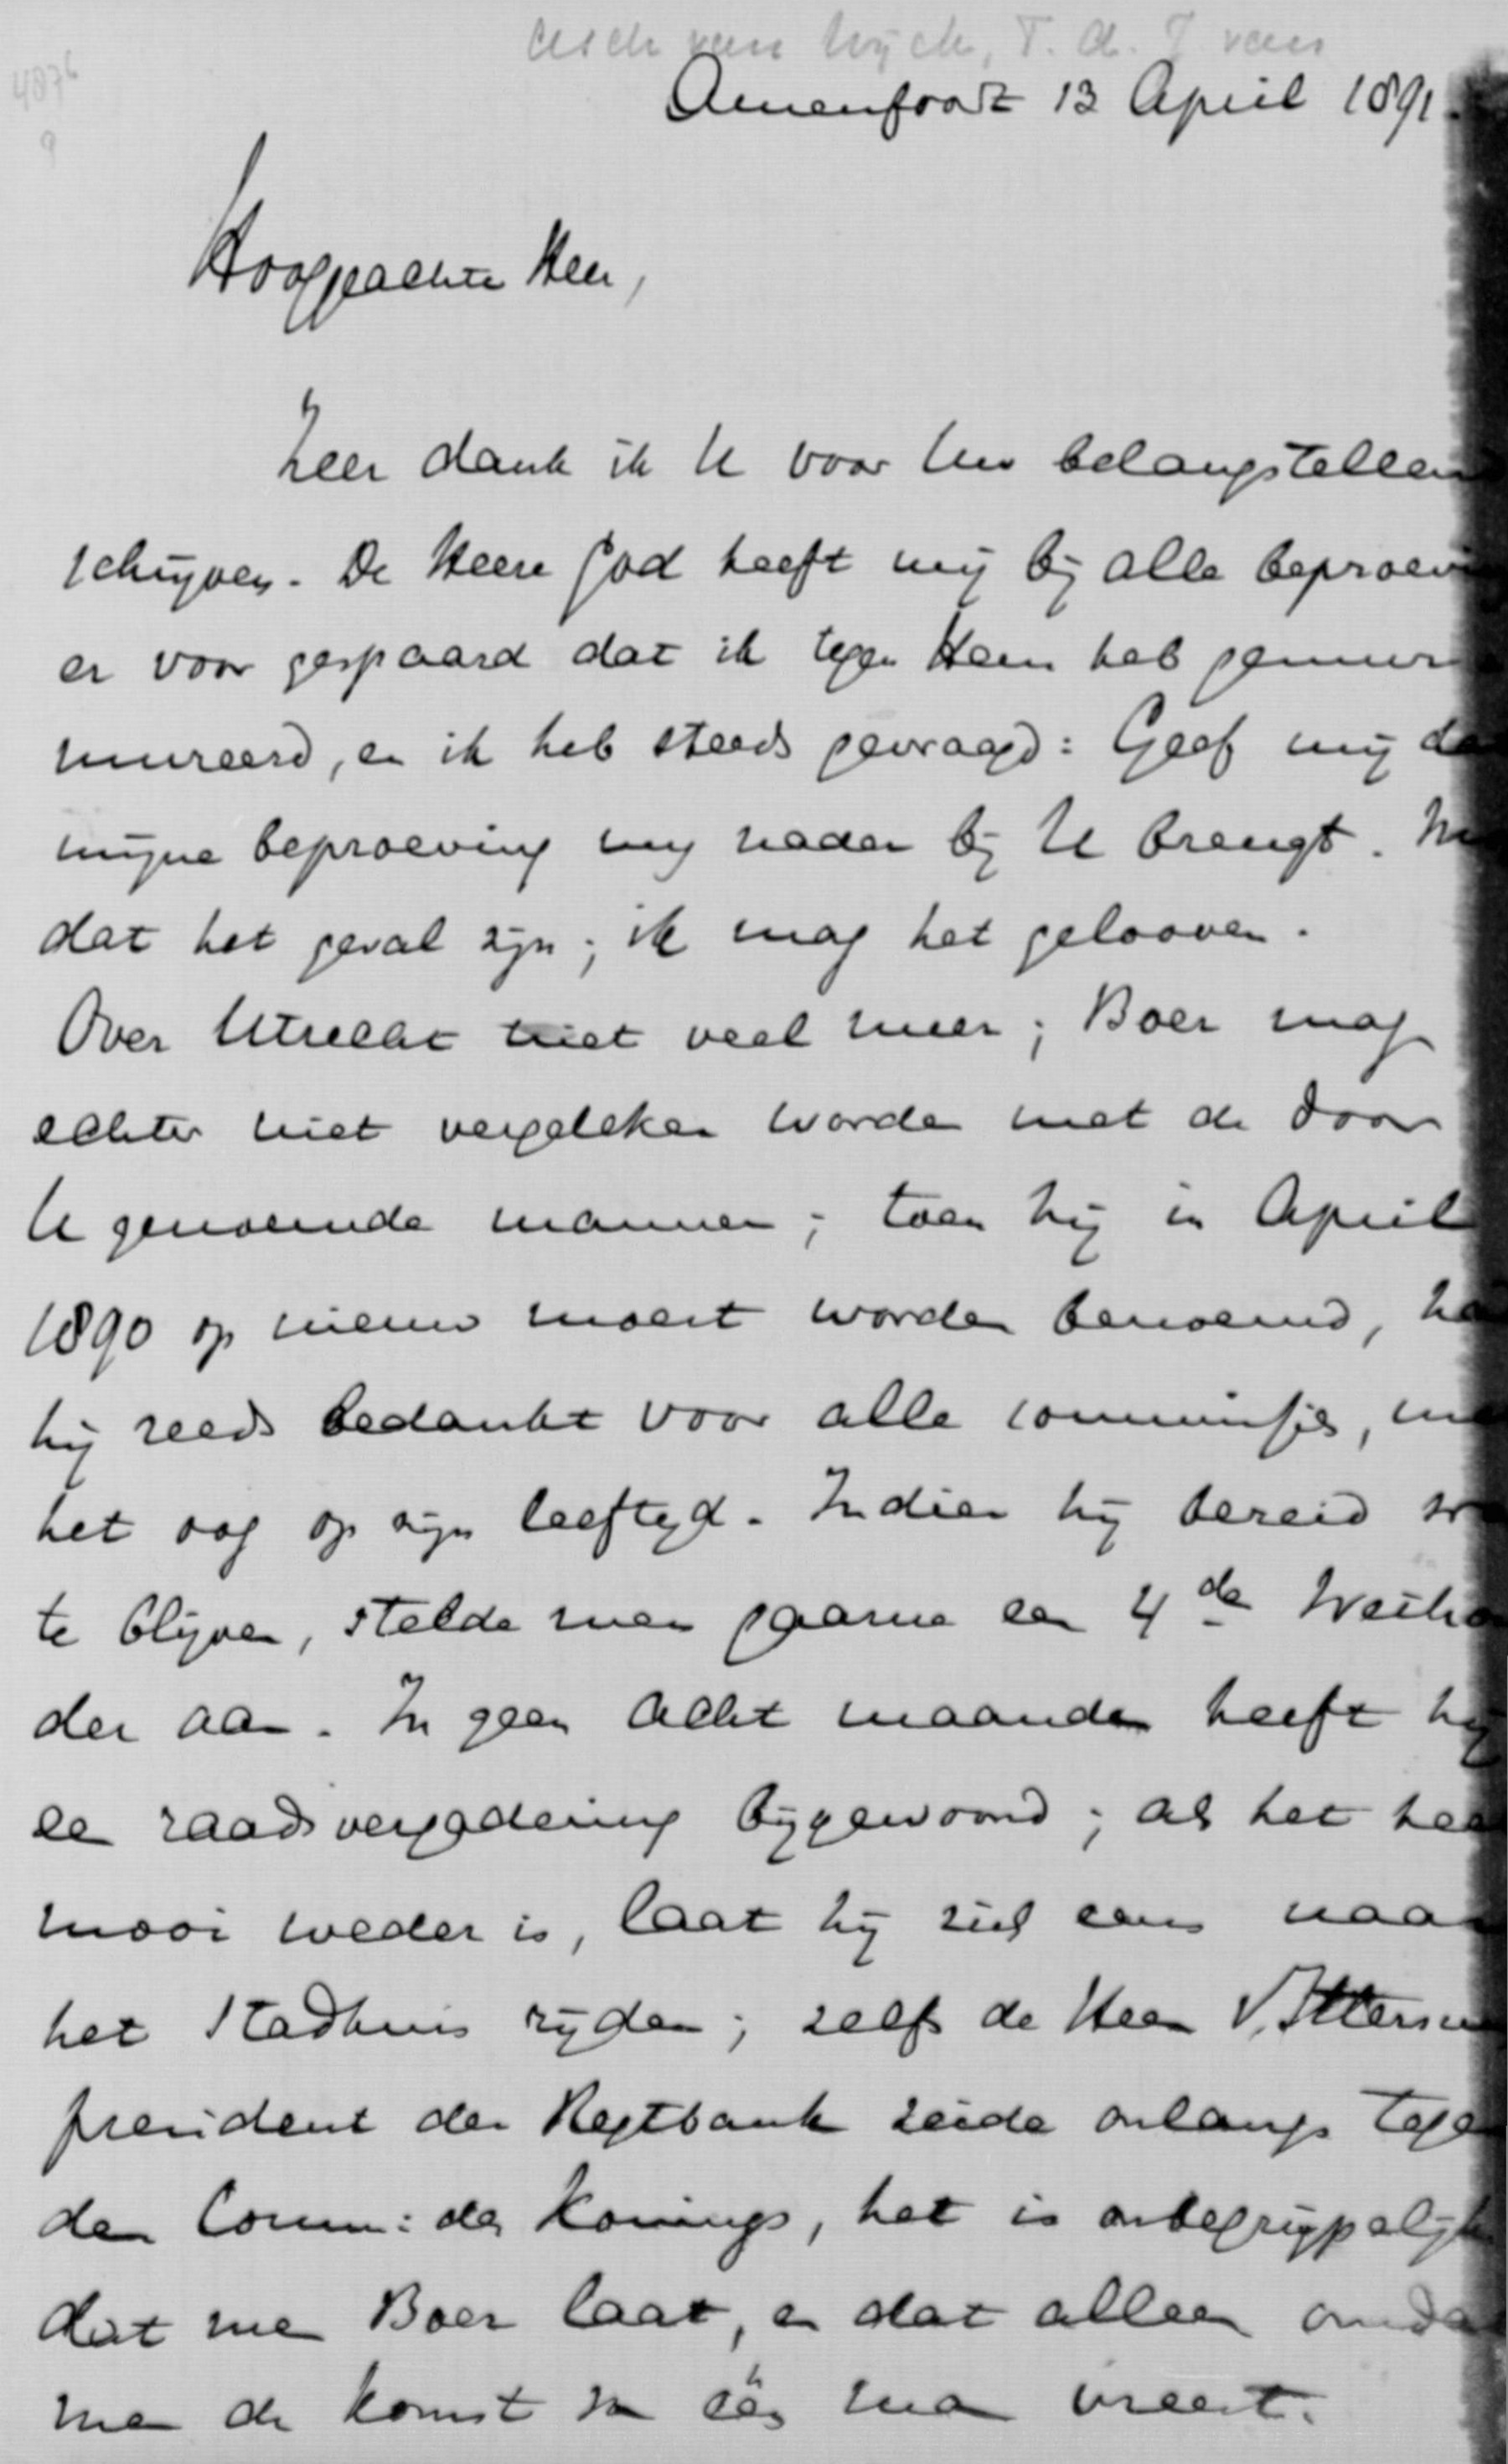 Asch van Wijck, T. A. J. van
4876
9
Amersfoort 13 April 1891.
Hooggeachte Heer,
Zeer dank ik U voor Uw belangstellen
schrijven. De Heere God heeft mij bij alle beproevi
er voor gespaard dat ik tegen Hem heb gemur
mureerd, en ik heb steeds gevraagd: Geef mij da
mijne beproeving mij nader bij U brengt. M
dat het geval zijn; ik mag het gelooven.
Over Utrecht niet veel meer; Boer mag
echter niet vergeleken worden met de door
U genoemde mannen; toen hij in April
1890 op nieuw moest worden benoemd, ha
hij reeds bedankt voor alle commissies, me
het oog op zijn leeftijd. Indien hij bereid w
te blijven, stelde men gaarne een 4de Weth
der aan. In geen acht maanden heeft hij
een raadsvergadering bijgewoond; als het hee
mooi weder is, laat hij zich eens naar
het Stadhuis rijden; zelfs de Heer V. Ittersu
president der Regtbank zeide onlangs tege
den Comm: des Konings, het is onbegrijpelijk
dat men Boer laat, en dat alleen omda
men de komst van één man vreest.